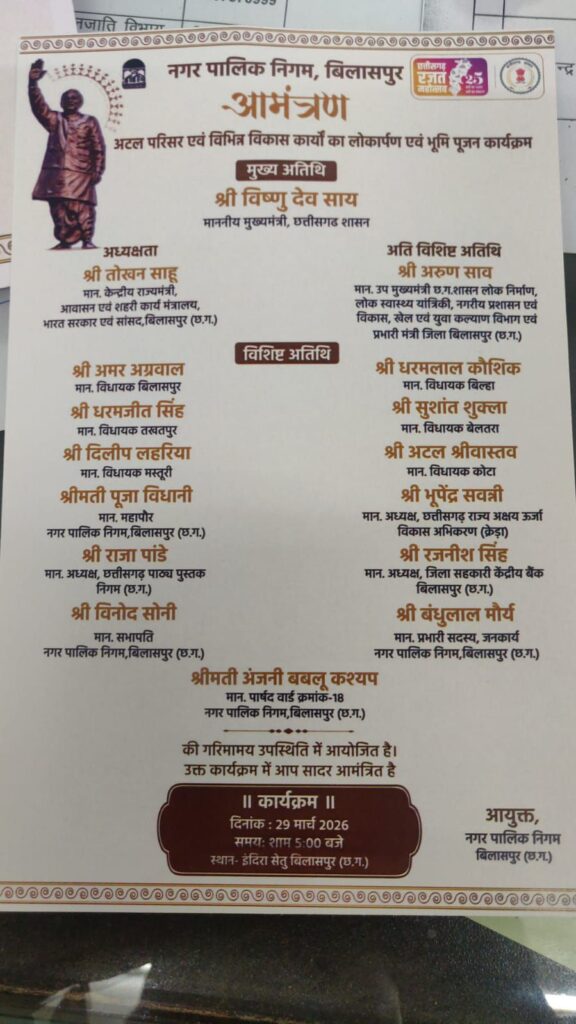 नजाति विभाग
नगर पालिक निगम, बिलासपुर
छत्तीसगढ़
रजत
महोत्सव
25
आमंत्रण
अटल परिसर एवं विभिन्न विकास कार्यों का लोकार्पण एवं भूमि पूजन कार्यक्रम
मुख्य अतिथि
श्री विष्णु देव साय
माननीय मुख्यमंत्री, छत्तीसगढ शासन
अध्यक्षता
श्री तोखन साहू
मान. केन्द्रीय राज्यमंत्री,
आवासन एवं शहरी कार्य मंत्रालय,
भारत सरकार एवं सांसद,बिलासपुर (छ.ग.)
अति विशिष्ट अतिथि
श्री अरुण साव
मान. उप मुख्यमंत्री छ.ग.शासन लोक निर्माण,
लोक स्वास्थ्य यांत्रिकी, नगरीय प्रशासन एवं
विकास, खेल एवं युवा कल्याण विभाग एवं
प्रभारी मंत्री जिला बिलासपुर (छ.ग.)
विशिष्ट अतिथि
श्री अमर अग्रवाल
मान. विधायक बिलासपुर
श्री धरमलाल कौशिक
मान. विधायक बिल्हा
श्री धरमजीत सिंह
मान. विधायक तखतपुर
श्री सुशांत शुक्ला
मान. विधायक बेलतरा
श्री दिलीप लहरिया
मान. विधायक मस्तूरी
श्री अटल श्रीवास्तव
मान. विधायक कोटा
श्रीमती पूजा विधानी
मान. महापौर
नगर पालिक निगम,बिलासपुर (छ.ग.)
श्री भूपेंद्र सवन्नी
मान. अध्यक्ष, छत्तीसगढ़ राज्य अक्षय ऊर्जा
विकास अभिकरण (क्रेडा)
श्री राजा पांडे
मान. अध्यक्ष, छत्तीसगढ़ पाठ्य पुस्तक
निगम (छ.ग.)
श्री रजनीश सिंह
मान. अध्यक्ष, जिला सहकारी केंद्रीय बैंक
बिलासपुर (छ.ग.)
श्री विनोद सोनी
मान. सभापति
नगर पालिक निगम,बिलासपुर (छ.ग.)
श्री बंधुलाल मौर्य
मान. प्रभारी सदस्य, जनकार्य
नगर पालिक निगम,बिलासपुर (छ.ग.)
श्रीमती अंजनी बबलू कश्यप
मान. पार्षद वार्ड क्रमांक-18
नगर पालिक निगम,बिलासपुर (छ.ग.)
की गरिमामय उपस्थिति में आयोजित है।
उक्त कार्यक्रम में आप सादर आमंत्रित है
॥ कार्यक्रम ॥
दिनांक : 29 मार्च 2026
समय: शाम 5:00 बजे
स्थान- इंदिरा सेतु बिलासपुर (छ.ग.)
आयुक्त,
नगर पालिक निगम
बिलासपुर (छ.ग.)